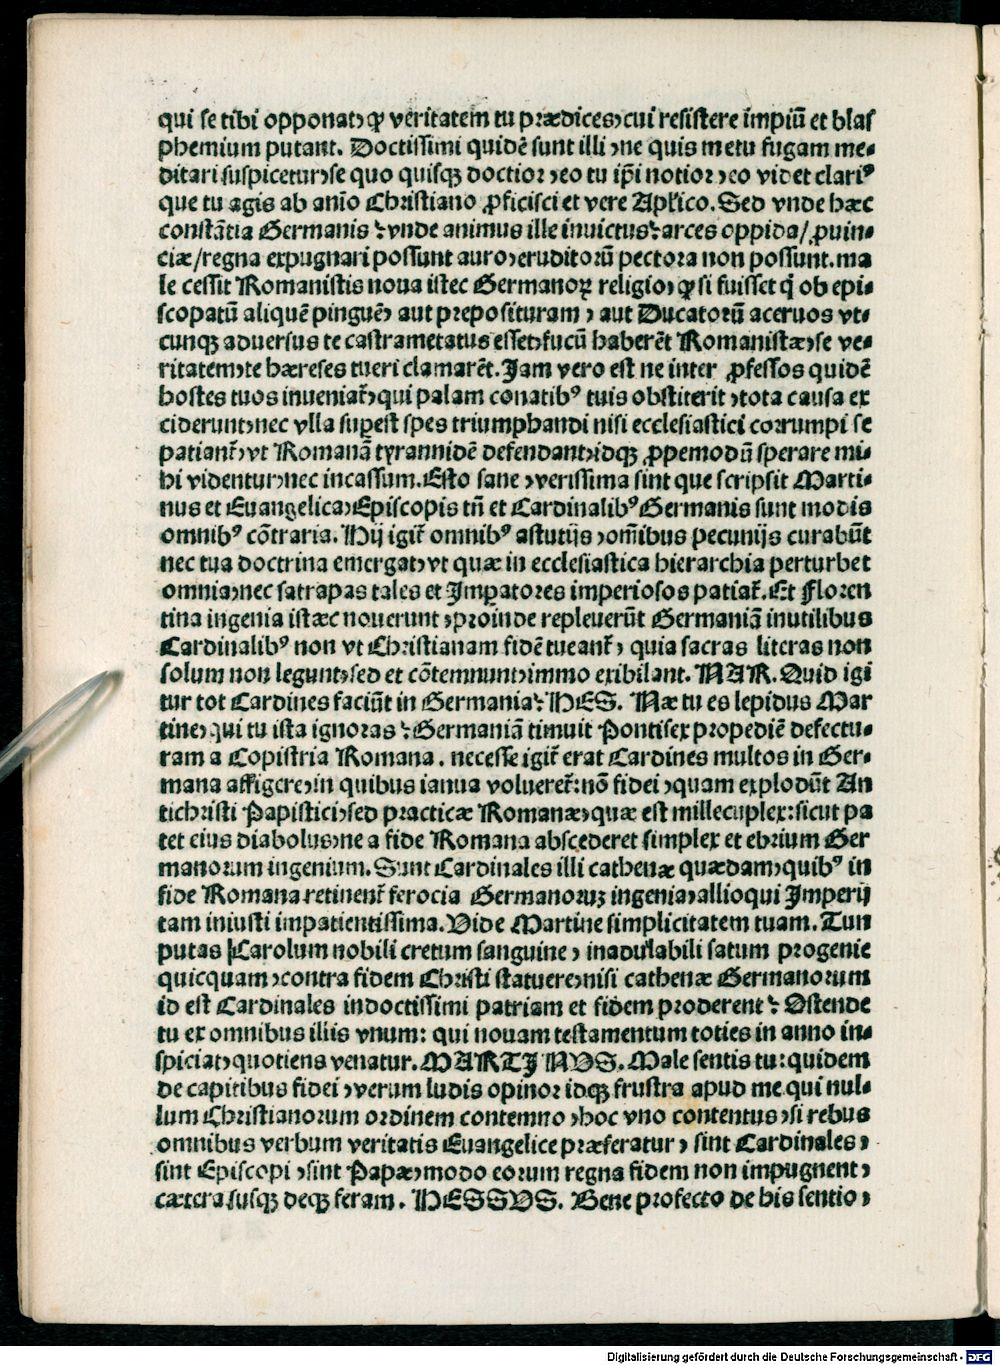 qui se tibi opponat, ꝙ veritatem tu prædices, cui resistere impiū et blas
phemium putant. Doctissimi quidē sunt illi, ne quis metu fugam me-
ditari suspicetur, se quo quisqꝫ doctior, eo tu ip̄i notior, eo videt clariꝰ
que tu agis ab anīo Christiano ꝓficisci et vere Apl'ico. Sed vnde hæc
constātia Germanis? vnde animus ille inuictus? arces oppida/ ꝓuin-
ciæ/ regna expugnari possunt auro, eruditorū pectora non possunt. ma
le cessit Romanistis noua istec Germanoꝝ religio, ꝙ si fuisset q̄ ob epi-
scopatū aliquē pinguē, aut preposituram, aut Ducatorū aceruos vt-
cunqꝫ aduersus te castrametatus esset, fucū haberēt Romanistæ, se ve-
ritatem, te hæreses tueri clamarēt. Jam vero est ne inter ꝓfessos quidē
hostes tuos inueniat᷑, qui palam conatibꝰ tuis obstiterit, tota causa ex
ciderunt, nec vlla suꝑest spes triumphandi nisi ecclesiastici corrumpi se
patiant᷑, vt Romanā tyrannidē defendant, idqꝫ ꝓpemodū sperare mi-
hi videntur, nec incassum. Esto sane, verissima sint que scripsit Marti-
nus et Euangelica, Episcopis tn̄ et Cardinalibꝰ Germanis sunt modis
omnibꝰ cōtraria. Hij igit᷑ omnibꝰ astutijs, om̄ibus pecunijs curabūt
nec tua doctrina emergat, vt quæ in ecclesiastica hierarchia perturbet
omnia, nec satrapas tales et Imꝑatores imperiosos patiat᷑. Et Floren
tina ingenia istæc nouerunt, proinde repleuerūt Germaniā inutilibus
Cardinalibꝰ non vt Christianam fidē tueant᷑, quia sacras literas non
solum non legunt, sed et cōtemnunt, immo exibilant. NAR. Quid igi
tur tot Cardines faciūt in Germania? HES. Næ tu es lepidus Mar
tine, qui tu ista ignoras? Germaniā timuit Pontifex propediē defectu-
ram a Copistria Romana. necesse igit᷑ erat Cardines multos in Ger-
mana affigere, in quibus ianua volueret᷑: nō fidei, quam explodūt An
tichristi Papistici, sed practicæ Romanæ, quæ est millecuplex: sicut pa
tet eius diabolus, ne a fide Romana abscederet simplex et ebrium Ger
manorum ingenium. Sunt Cardinales illi cathenæ quædam, quibꝰ in
fide Romana retinent᷑ ferocia Germanoruꝫ ingenia, allioqui Imperij
tam iniusti impatientissima. Vide Martine simplicitatem tuam. Tun
putas Carolum nobili cretum sanguine, inadulabili satum progenie
quicquam, contra fidem Christi statuere, nisi cathenæ Germanorum
id est Cardinales indoctissimi patriam et fidem proderent? Ostende
tu ex omnibus illis vnum: qui nouam testamentum toties in anno in-
spiciat, quotiens venatur. MARTINVS. Male sentis tu: quidem
de capitibus fidei, verum ludis opinor idqꝫ frustra apud me qui nul-
lum Christianorum ordinem contemno, hoc vno contentus, si rebus
omnibus verbum veritatis Euangelice præferatur, sint Cardinales,
sint Episcopi, sint Papæ, modo eorum regna fidem non impugnent,
cætera susqꝫ deqꝫ feram. HESSVS. Bene profecto de his sentio,
Digitalisierung gefördert durch die Deutsche Forschungsgemeinschaft - DFG